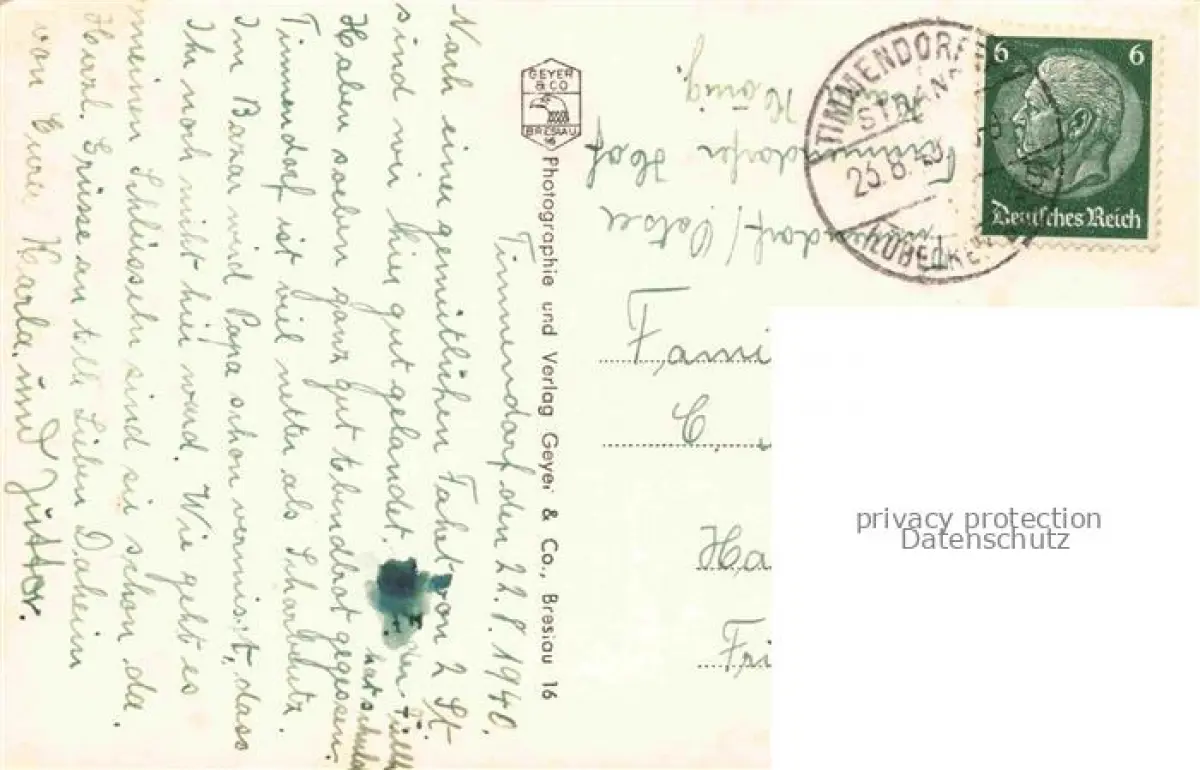 Timmendorf den 22.8.1940.
Nach einer gemütlichen Fahrt von 2 St.
sind wir hier gut gelandet.
Haben soeben ganz gut Abendbrot gegessen.
Timmendorf ist viel netter als Scharbeutz.
Im Bazar wird Papa schon vermisst, dass
Ihr noch nicht hier ward. Wie geht es
meinen Schlüsseln sind sie schon da.
Herzl. Grüsse an alle Lieben Daheim
von Eurer Karla. und
GEYER
& CO
BRESLAU
Photographie und Verlag Geyer & Co., Breslau 16
König.
Hof
/Ostsee
TIMMENDORF
STRAND
LÜBECK
6 6
Deutsches Reich
Fami
Ha
Fri
privacy protection
Datenschutz